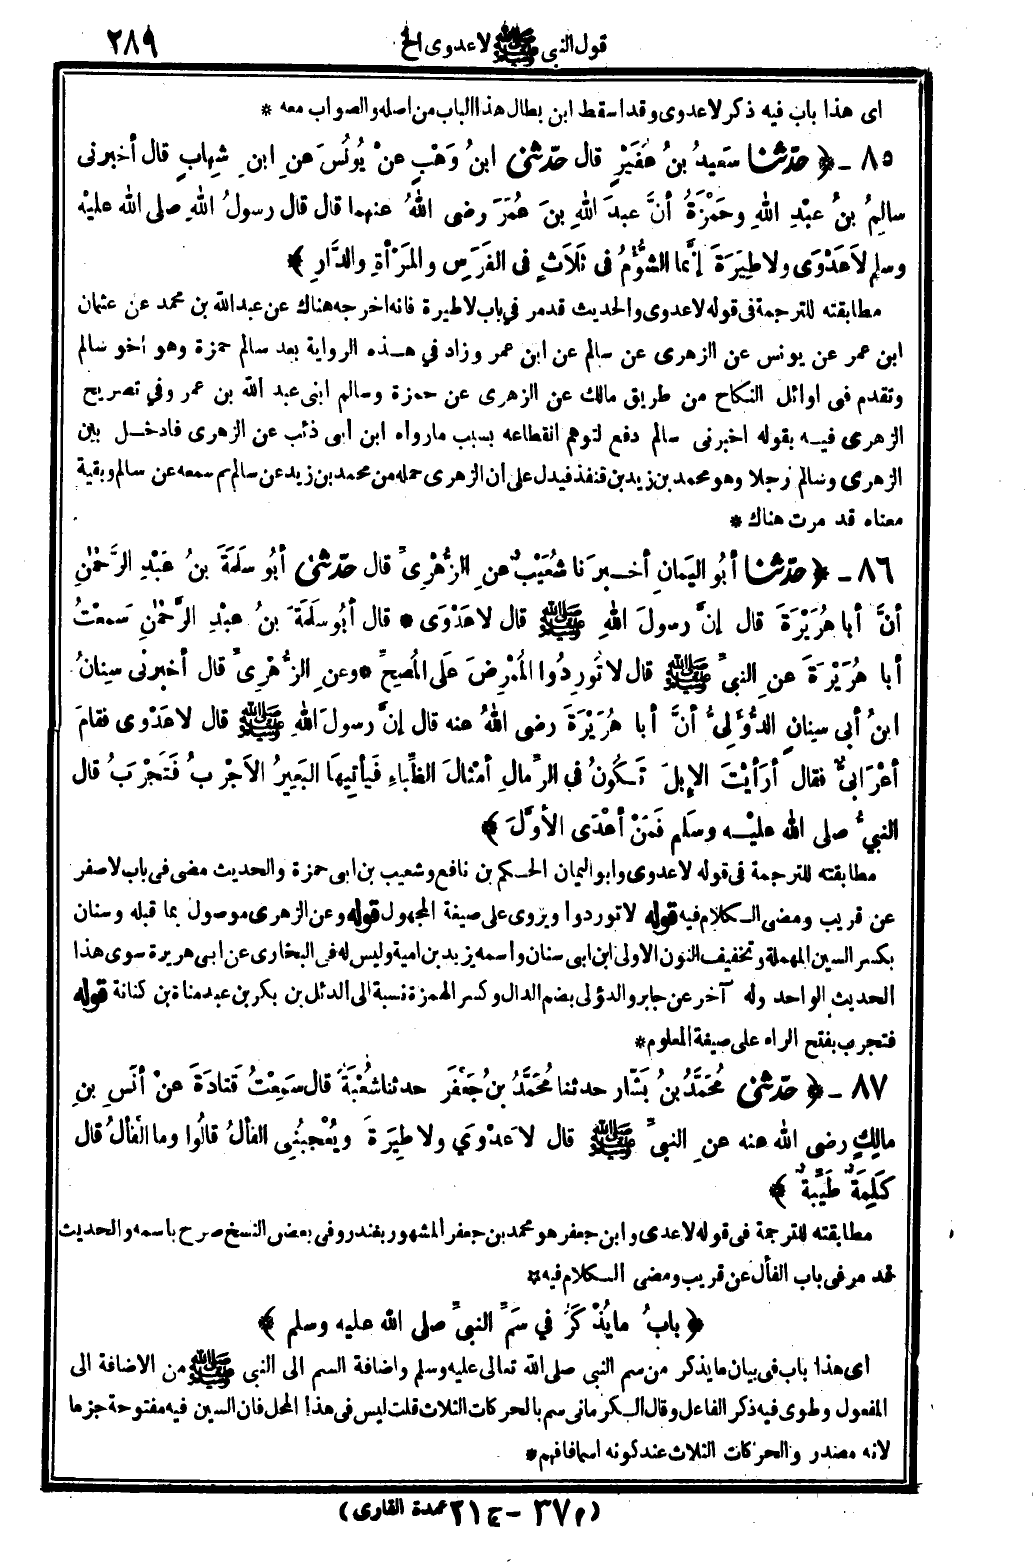 قول النبي ﷺ لا عدوى الخ ٢٨٩
اى هذا باب فيه ذكر لا عدوى وقد اسقط ابن بطال هذا الباب من اصله والصواب معه *
٨٥ - ﴿ حدّثنا سَعيدُ بنُ عُفَيْرٍ قال حدّثني ابنُ وَهْبٍ عنْ يُونُسَ عنِ ابنِ شِهابٍ قال أخبرنى
سالِمُ بنُ عبْدِ اللهِ وحَمْزَةُ أنَّ عبدَ اللهِ بنَ عُمَرَ رضى اللهُ عنهما قال قال رسولُ اللهِ صلى الله عليْه
وسلم لاَ عَدْوَى ولا طِيَرَةَ إنَّما الشُّؤْمُ فى ثَلَاثٍ فى الفَرَسِ والمَرْأةِ والدَّارِ ﴾
مطابقته للترجمة فى قوله لا عدوى والحديث قد مر في باب لا طيرة فانه اخرجه هناك عن عبدالله بن محمد عن عثمان
ابن عمر عن يونس عن الزهرى عن سالم عن ابن عمر وزاد في هذه الرواية بعد سالم حمزة وهو أخو سالم
وتقدم فى اوائل النكاح من طريق مالك عن الزهرى عن حمزة وسالم ابنى عبد الله بن عمر وفي تصريح
الزهرى فيه بقوله اخبرنى سالم دفع لتوهم انقطاعه بسبب مارواه ابن ابى ذئب عن الزهرى فادخل بين
الزهرى وسالم رجلا وهو محمد بن زيد بن قنفذ فيدل على ان الزهرى حمله من محمد بن زيد عن سالم ثم سمعه عن سالم وبقية
معناه قد مرت هناك *
٨٦ - ﴿ حدّثنا أبُو اليَمانِ أخبرَنا شُعَيْبٌ عنِ الزُّهْرِىِّ قال حدّثنى أبُو سَلَمَةَ بنُ عَبْدِ الرَّحْمٰنِ
أنَّ أبا هُرَيْرَةَ قال إنَّ رسولَ اللهِ ﷺ قال لا عَدْوَى * قال أبُو سلَمَةَ بنُ عبْدِ الرَّحْمٰنِ سَمعْتُ
أبا هُرَيْرَةَ عنِ النبيِّ ﷺ قال لا تُورِدُوا المُمْرِضَ عَلَى المُصِحِّ * وعنِ الزُّهْرِىِّ قال أخبرنى سِنانُ
ابنُ أبى سِنانٍ الدُّؤَلِىُّ أنَّ أبا هُرَيْرَةَ رضى اللهُ عنه قال إنَّ رسولَ اللهِ ﷺ قال لا عَدْوى فقامَ
أعْرَابىٌّ فقال أرَأيْتَ الإبِلَ تَكُونُ في الرِّمالِ أمْثالَ الظِّباءِ فَيأتِيهَا البَعِيرُ الأجْرَبُ فَتَجْرَبُ قال
النبيُّ صلى الله عليْه وسلَم فَمَنْ أعْدَى الأوَّلَ ﴾
مطابقته للترجمة فى قوله لا عدوى وابو اليمان الحكم بن نافع وشعيب بن ابى حمزة والحديث مضى فى باب لا صفر
عن قريب ومضى الكلام فيه قوله لا توردوا ويروى على صيغة المجهول قوله وعن الزهرى موصول بما قبله وسنان
بكسر السين المهملة وتخفيف النون الاولى ابن ابى سنان واسمه يزيد بن امية وليس له فى البخارى عن ابى هريرة سوى هذا
الحديث الواحد وله آخر عن جابر والدؤلى بضم الدال وكسر الهمزة نسبة الى الدئل بن بكر بن عبد مناة بن كنانة قوله
فتجرب بفتح الراء على صيغة المعلوم *
٨٧ - ﴿ حدّثنى مُحَمَّدُ بنُ بَشَّار حدثنا مُحَمَّدُ بنُ جَعْفَر حدثنا شُعْبَةُ قال سَمِعْتُ قَتادَةَ عنْ أنَسِ بنِ
مالِكٍ رضى الله عنه عنِ النبيِّ ﷺ قال لا عَدْوَي ولا طِيَرَةَ ويُعْجِبُنِى الفألُ قالُوا وما الفألُ قال
كَلِمَةٌ طَيِّبةٌ ﴾
مطابقته للترجمة فى قوله لا عدى وابن جعفر هو محمد بن جعفر المشهور بغندر وفى بعض النسخ صرح باسمه والحديث
قد مر فى باب الفأل عن قريب ومضى الكلام فيه *
﴿ بابُ ما يُذْكَرُ في سَمِّ النبيِّ صلى الله عليه وسلم ﴾
اى هذا باب فى بيان ما يذكر من سم النبي صلى الله تعالى عليه وسلم واضافة السم الى النبي ﷺ من الاضافة الى
المفعول وطوى فيه ذكر الفاعل وقال الكرمانى سم بالحركات الثلاث قلت ليس فى هذا المحل فان السين فيه مفتوحة جزما
لانه مصدر والحركات الثلاث عند كونه اسما فافهم *
(م ٣٧ - ج ٢١ عمدة القارى)